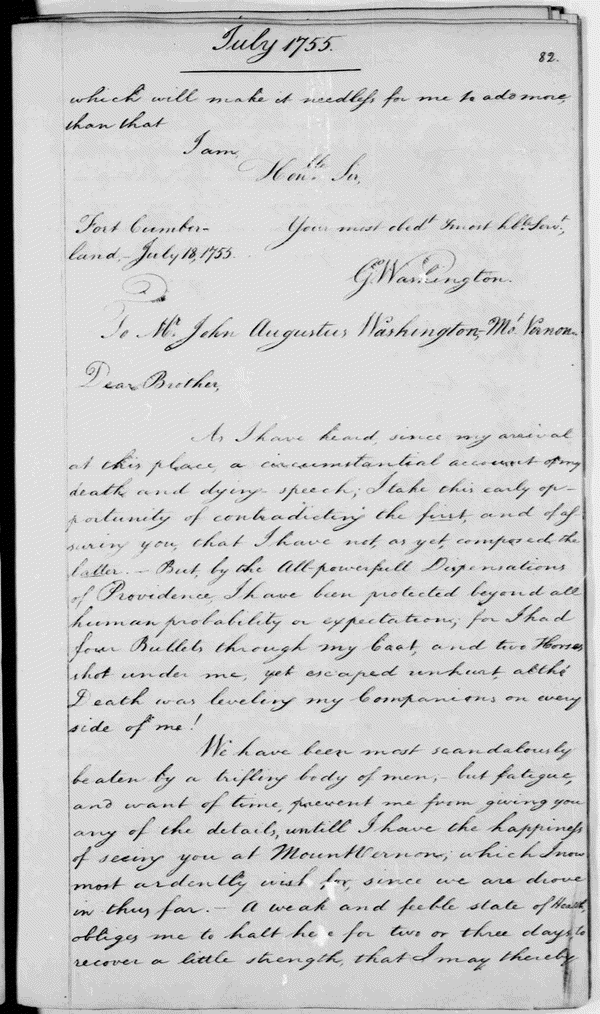 July 1755.
82.
which will make it needless for me to add more
than that
I am,
Hon.ble Sir,
Fort Cumber-
land,- July 18, 1755.
Your most obed.t & most hble Serv.t,
G.o Washington.
To M.r John Augustus Washington,- M.t Vernon.
Dear Brother,
As I have heard, since my arrival
at this place, a circumstantial account of my
death and dying speech; I take this early op-
portunity of contradicting the first, and of as-
suring you, that I have not, as yet, composed the
latter. - But, by the All-powerfull Dispensations
of Providence, I have been protected beyond all
human probability or expectation; for I had
four Bullets through my Coat, and two Horses
shot under me, yet escaped unhurt, altho'
Death was leveling my Companions on every
side of me!
We have been most scandalously
beaten by a trifling body of men;- but fatigue,
and want of time, prevent me from giving you
any of the details, untill I have the happiness
of seeing you at Mount Vernon; which I now
most ardently wish for, since we are drove
in thus far. - A weak and feeble state of Health,
obliges me to halt here for two or three days, to
recover a little strength, that I may thereby